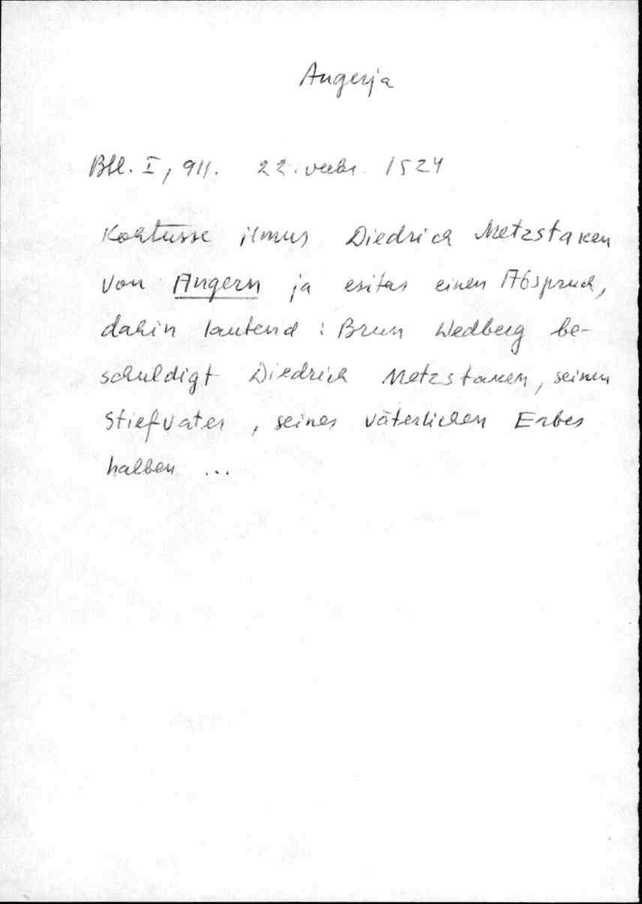 Angerja
BLL. I, 911. 22. veebr. 1524
Kohtusse ilmus Diedrich Metzstaken
von Angern ja esitas einen Abspruch,
dahin lautend : Brun Wedberg be-
schuldigt Diedrich Metzstaken, seinen
Stiefvater, seines väterlichen Erbes
halben ...